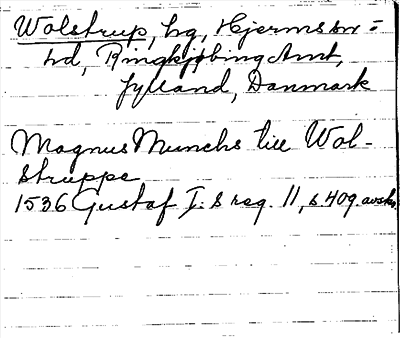 Wolstrup, hg, Hjerms sn =
hd, Ringkjöbing Amt,
Jylland, Danmark
Magnus Munchs till Wol-
struppe
1536 Gustaf I:s reg. 11, s 409. avskr.